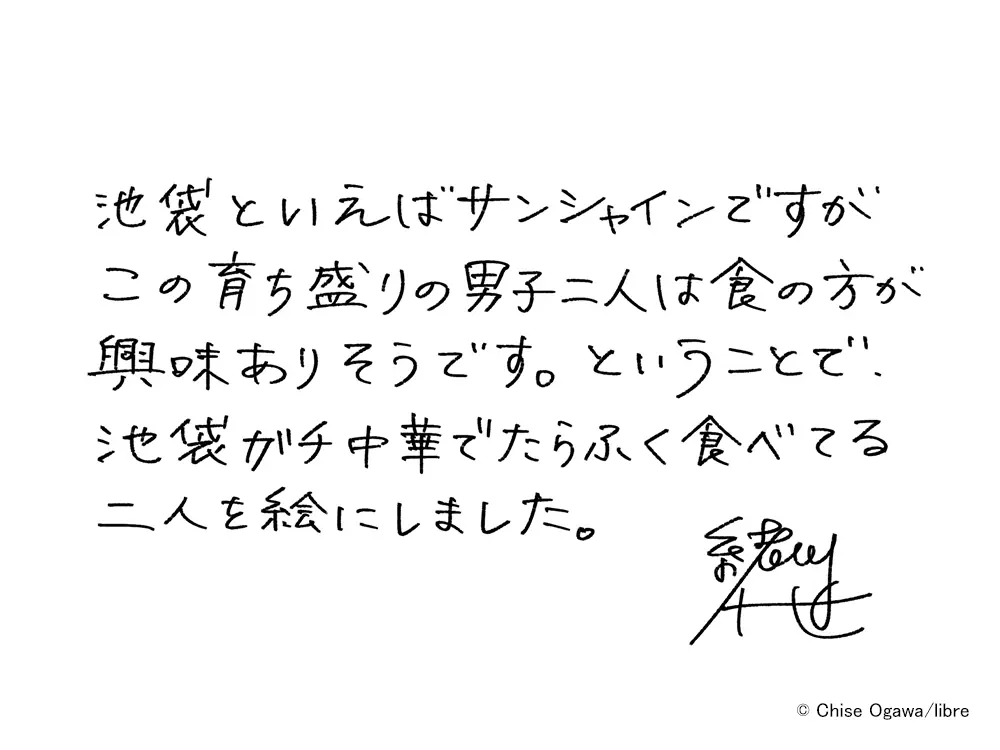 池袋といえばサンシャインですが
この育ち盛りの男子二人は食の方が
興味ありそうです。ということで、
池袋ガチ中華でたらふく食べてる
二人を絵にしました。
緒川千世
© Chise Ogawa/libre